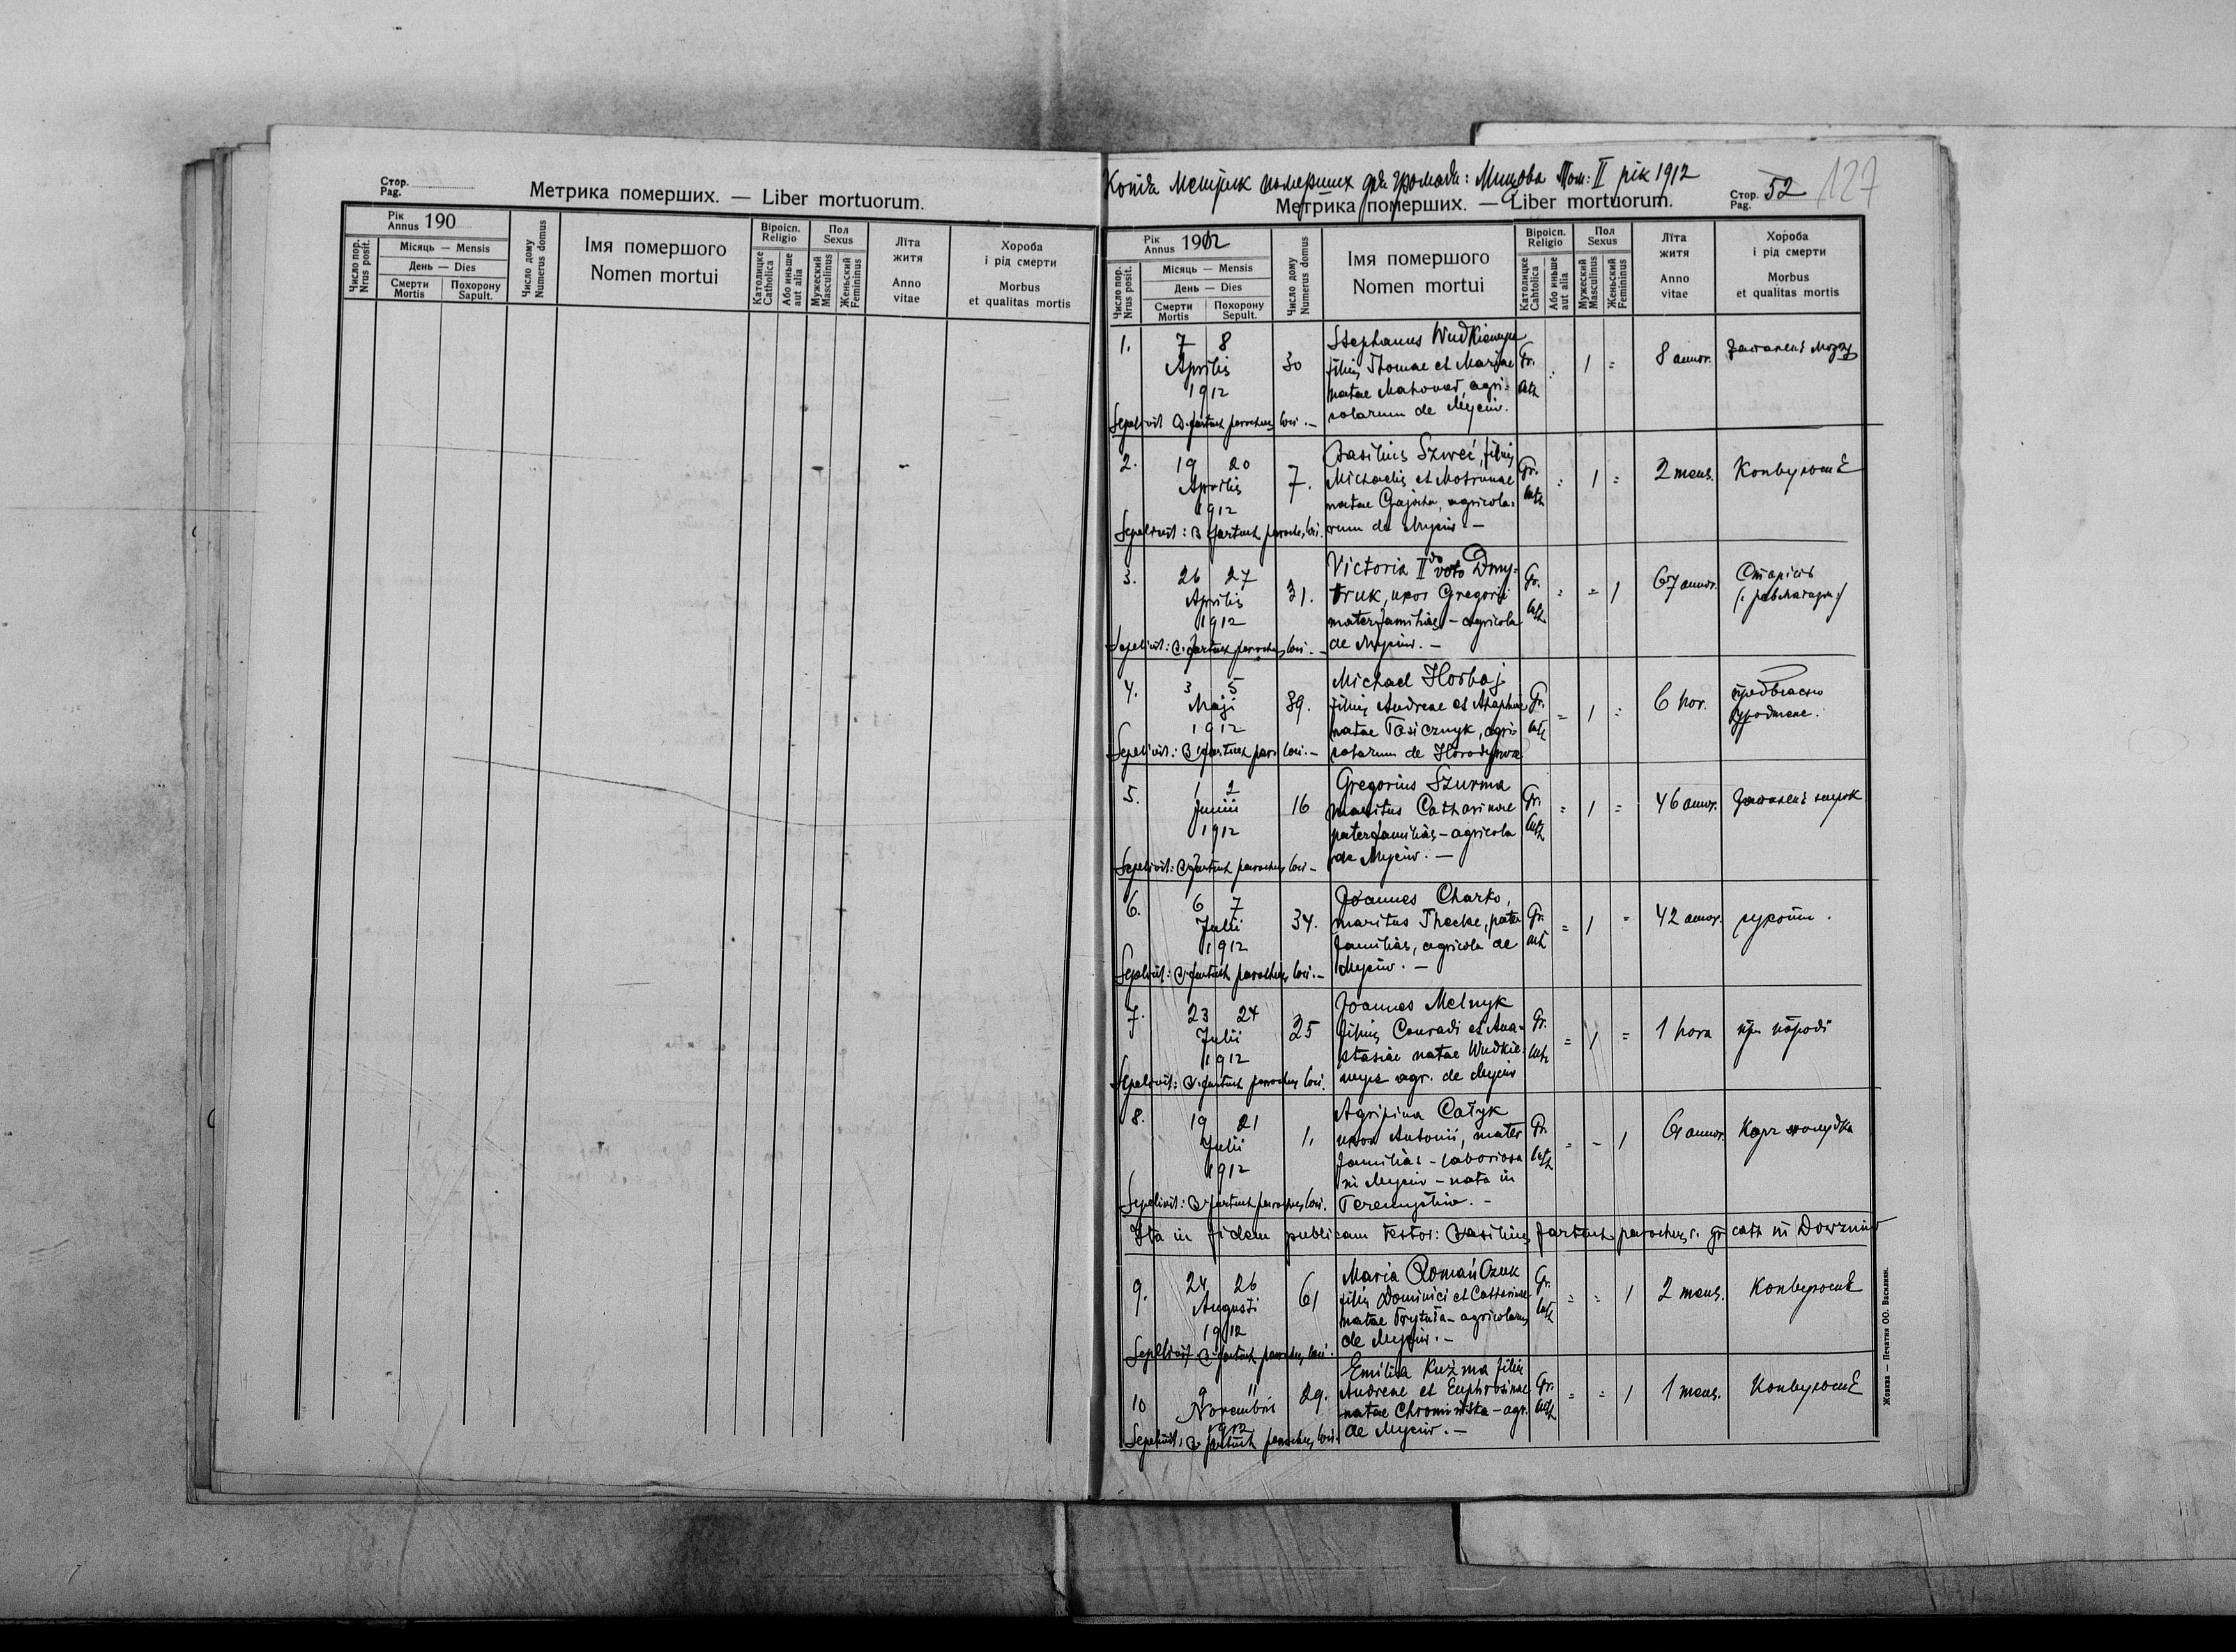 Стор.
Pag.
Метрика померших. — Liber mortuorum.
Рік
Annus 190
Число пор.
Nrus posit.
Місяць — Mensis
День — Dies
Смерти
Mortis
Похорону
Sapult.
Число дому
Numerus domus
Імя помершого
Nomen mortui
Віроісп.
Religio
Католицке
Catholica
Або иньше
aut alia
Пол
Sexus
Мужеский
Masculinus
Женьский
Femininus
Лїта
житя
Anno
vitae
Хороба
і рід смерти
Morbus
et qualitas mortis
Копія Метрик померших для громади: Мицова Том: II рік 1912
Метрика померших. — Liber mortuorum.
Стор.
Pag. 52
127
Рік
Annus 1912
Число пор.
Nrus posit.
Місяць — Mensis
День — Dies
Смерти
Mortis
Похорону
Sepult.
Число дому
Numerus domus
Імя помершого
Nomen mortui
Віроісп.
Religio
Католицке
Cahtolica
Або иньше
aut alia
Пол
Sexus
Мужеский
Masculinus
Женьский
Femininus
Лїта
житя
Anno
vitae
Хороба
і рід смерти
Morbus
et qualitas mortis
1. 7 8 Aprilis 1912 30
Stephanus
filius Thomae et Mariae
natae agri-
colarum de Myciw.
Gr. cath : 1 = 8 annor. мозгу
Sepelivit parochus loci. —
2. 19 20 Aprilis 1912 7.
Basilius Szweć, filius
Michaelis et Motrunae
natae agricola-
rum de Myciw. —
Gr. cath : 1 = 2 mens. Конвульсиї
Sepelivit: B parochus loci.
3. 26 27 Aprilis 1912 31.
Victoria IIdo voto Dmy-
truk, uxor Gregorii
materfamilias – agricola
de Myciw. —
Gr. cath = = 1 67 annor. Старість
Sepelivit: parochus loci. —
4. 3 5 Maji 1912 39.
Michael Horbaj
filius Andreae et Ahaphiae
natae Tasicznyk, agri
colarum de
Gr. cath = 1 : 6 hor. предвчасно
Sepelivit: B par. loci. —
5. 1 2 Junii 1912 16
Gregorius Szurma
maritus Catharinae
paterfamilias – agricola
de Myciw. —
Gr. cath = 1 = 46 annor.
Sepelivit: parochus loci –
6. 6 7 Julii 1912 34.
Joannes Charko,
maritus Theclae, pater
familias, agricola de
Myciw. —
Gr. cath = 1 = 42 annor. сухоти.
Sepelivit: parochus loci. —
7. 23 24 Julii 1912 25
Joannes Melnyk
filius Conradi et Ana-
stasiae natae
agr. de Myciw
Gr. cath = 1 = 1 hora при породї
Sepelivit: parochus loci.
8. 19 21 Julii 1912 1.
Agripina Całyk
uxor Antonii, mater
familias – laboriosa
in Myciw – nata in
Gr. cath = – 1 61 annor. жолудка
Sepelivit: parochus loci.
Ita in fidem publicam testor: Basilius parochus r. gr cath in
9. 24 26 Augusti 1912 61
Maria Romańczuk
filia Dominici et Catharinae
natae agricolarum
de Myciw. —
Gr. cath = = 1 2 mens. Конвульсиї
Sepelivit parochus loci.
10 9 11 Novembris 1912 29.
Emilia Kuźma filia
Andreae et Euphrosinae
natae – agr.
de Myciw. —
Gr. cath = = 1 1 mens. Конвульсиї
Sepelivit: parochus loci.
Жовква — Печатня ОО. Василиян.